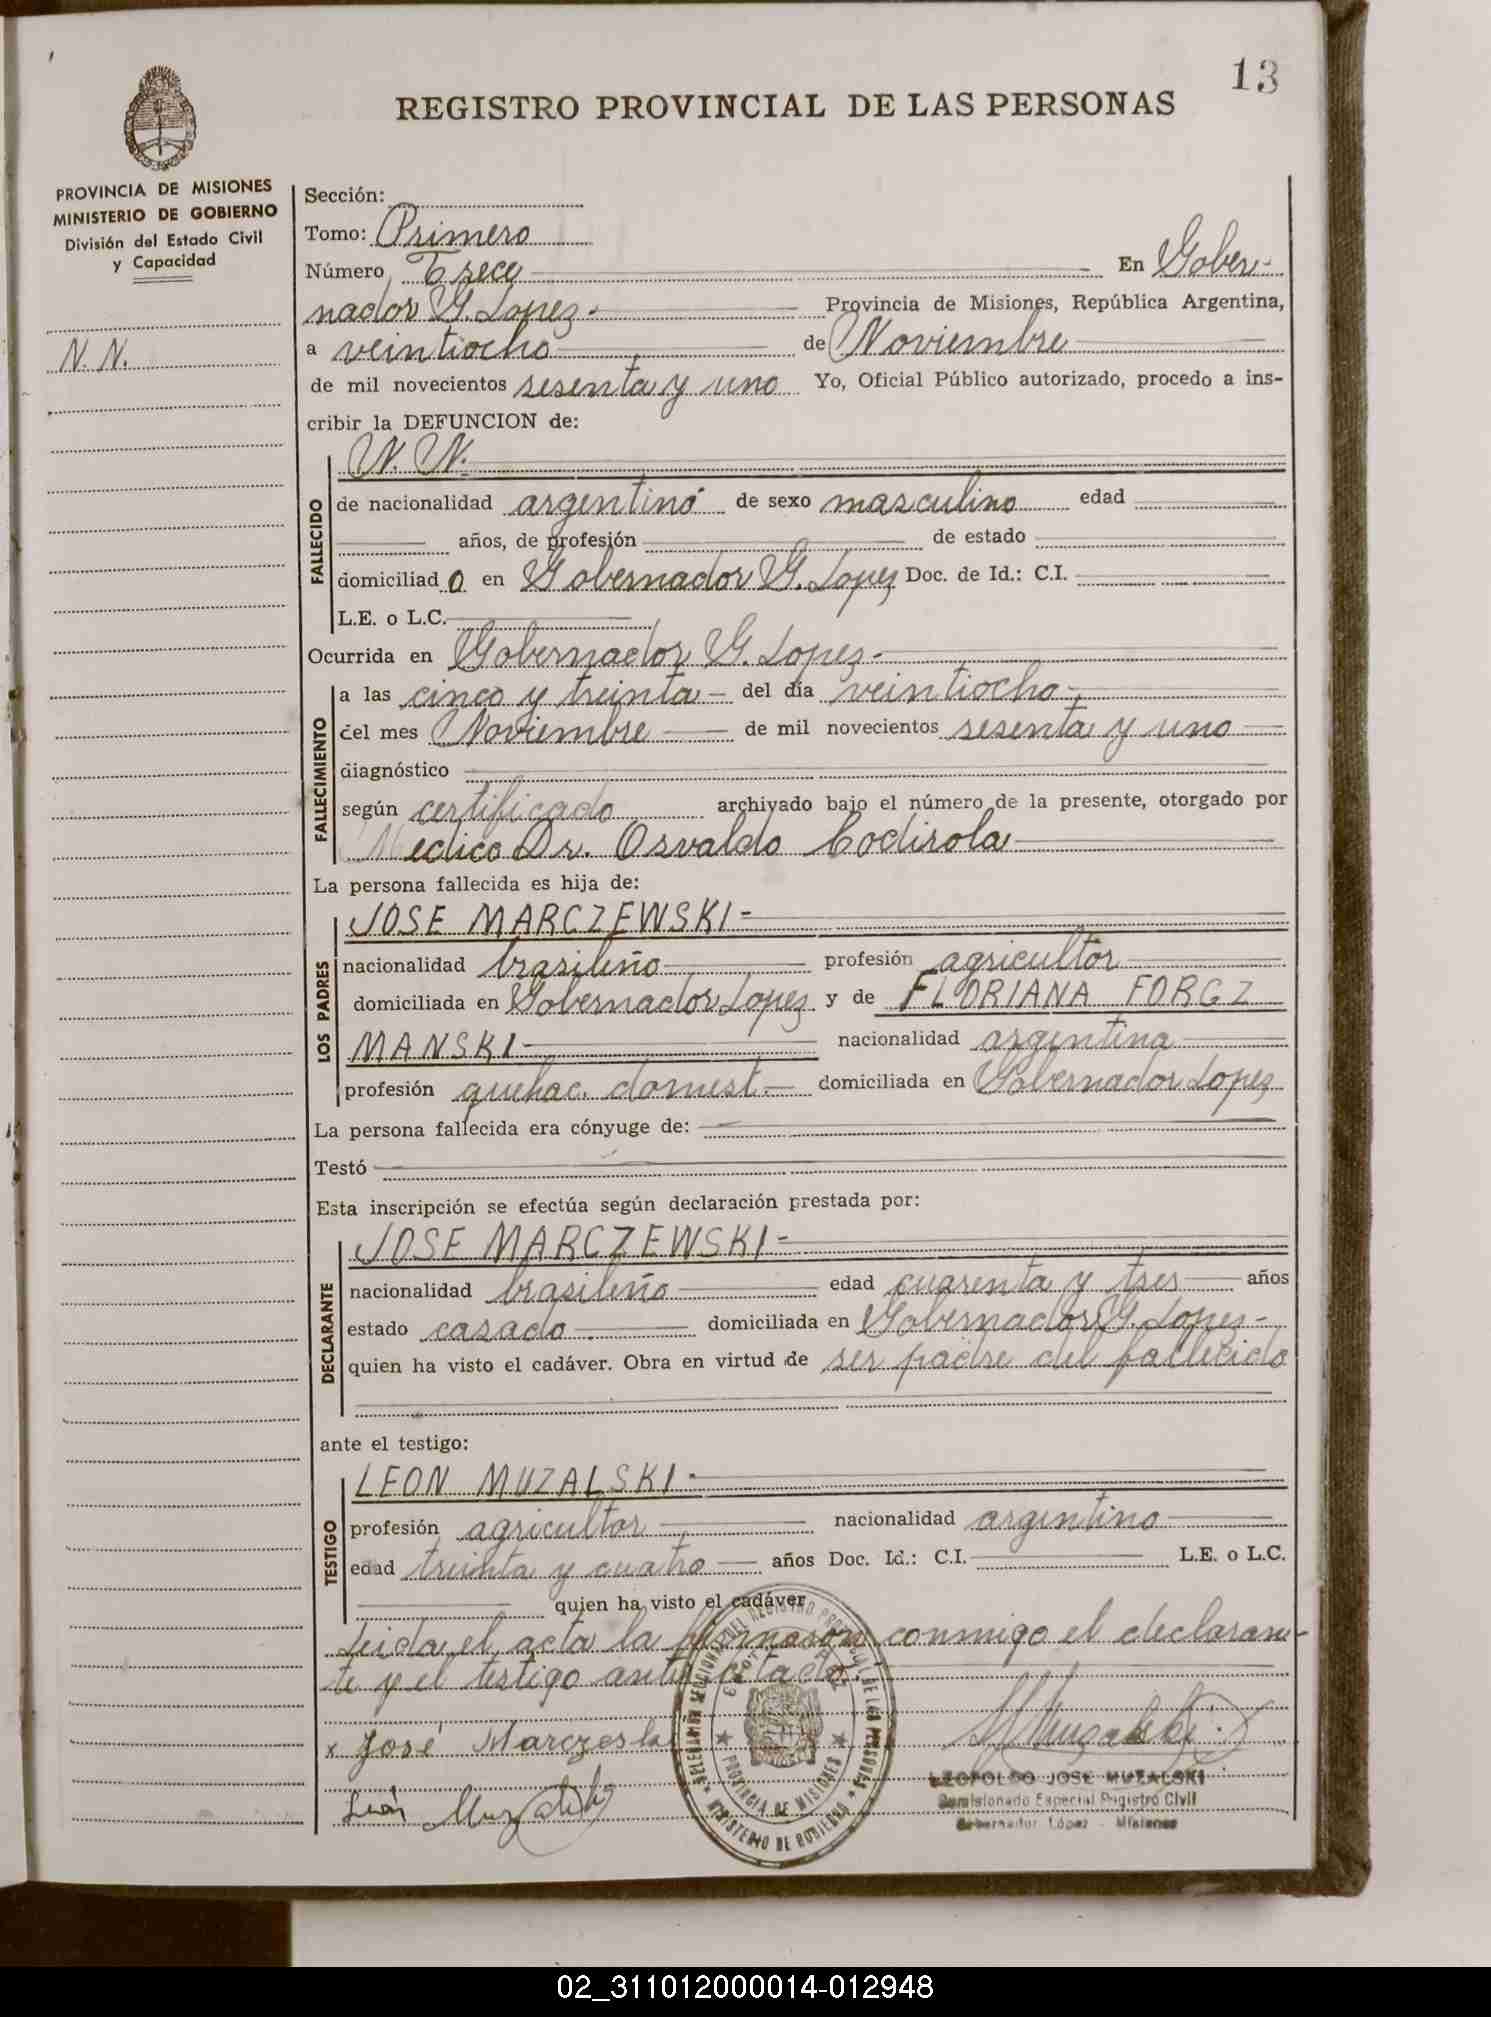 13
REGISTRO PROVINCIAL DE LAS PERSONAS
PROVINCIA DE MISIONES
MINISTERIO DE GOBIERNO
División del Estado Civil
y Capacidad
N. N.
Sección:
Tomo: Primero
Número Trece En Gober-
nador G. Lopez.- Provincia de Misiones, República Argentina,
a veintiocho de Noviembre
de mil novecientos sesenta y uno Yo, Oficial Público autorizado, procedo a ins-
cribir la DEFUNCION de:
N. N.
FALLECIDO
de nacionalidad argentino de sexo masculino edad
años, de profesión de estado
domiciliado en Gobernador G. Lopez Doc. de Id.: C.I.
L.E. o L.C.
Ocurrida en Gobernador G. Lopez.-
FALLECIMIENTO
a las cinco y treinta del día veintiocho
del mes Noviembre de mil novecientos sesenta y uno
diagnóstico
según certificado archivado bajo el número de la presente, otorgado por
Medico Dr. Osvaldo Codirola
La persona fallecida es hija de:
LOS PADRES
JOSE MARCZEWSKI-
nacionalidad brasileño profesión agricultor
domiciliada en Gobernador Lopez y de FLORIANA FORCZ
MANSKI-
nacionalidad argentina
profesión quehac. domest. domiciliada en Gobernador Lopez
La persona fallecida era cónyuge de:
Testó
Esta inscripción se efectúa según declaración prestada por:
DECLARANTE
JOSE MARCZEWSKI-
nacionalidad brasileño edad cuarenta y tres años
estado casado domiciliada en Gobernador G. Lopez-
quien ha visto el cadáver. Obra en virtud de ser padre del fallecido
ante el testigo:
TESTIGO
LEON MUZALSKI-
profesión agricultor nacionalidad argentino
edad treinta y cuatro años Doc. Id.: C.I. L.E. o L.C.
quien ha visto el cadáver
Leida el acta la firmaron conmigo el declaran-
te y el testigo ante citado.
x José Marczeski
León Muzalski
LEOPOLDO JOSE MUZALSKI
Comisionado Especial Registro Civil
Gobernador López - Misiones
PROVINCIA DE MISIONES
MINISTERIO DE GOBIERNO
02_311012000014-012948